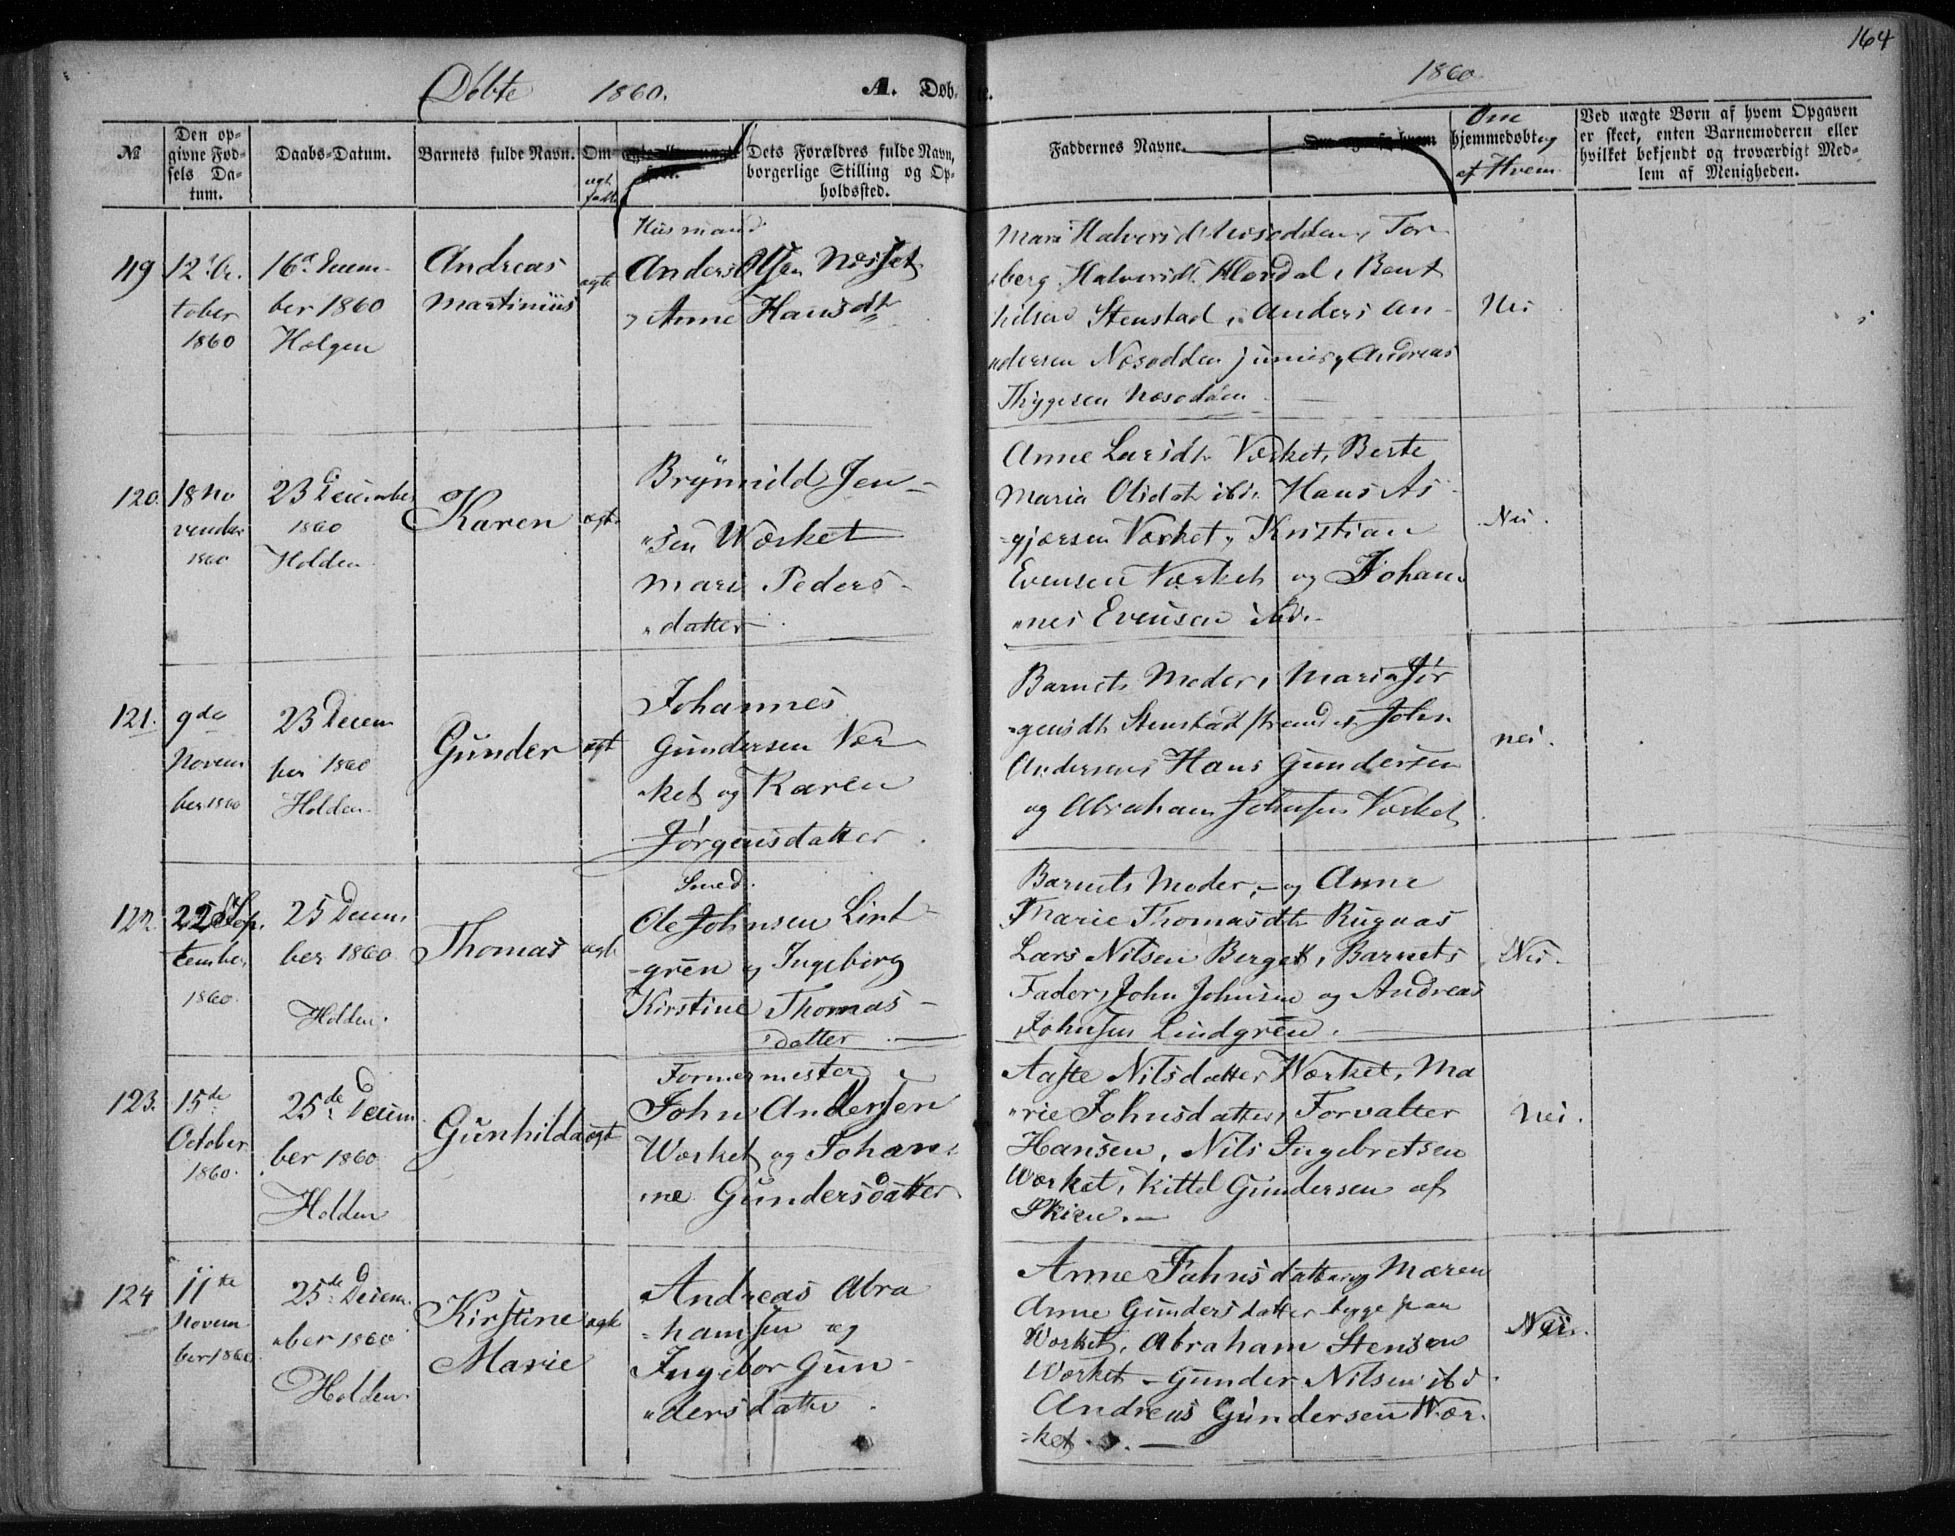 164
Döbte 1860. A. Døb- te. 1860
№
Den op-
givne Fød-
sels Da-
tum.
Daabs-Datum.
Barnets fulde Navn.
Om
ægte
født
Dets Forældres fulde Navn,
borgerlige Stilling og Op-
holdssted.
Faddernes Navne.
Om
hjemmedøbt og
af Hvem
Ved uægte Børn af hvem Opgaven
er skeet, enten Barnemoderen eller
hvilket bekjendt og troværdigt Med-
lem af Menigheden.
119
12te Oc.
tober
1860
16de Decem-
ber 1860
Helgen
Andreas
Martinius
ægte
Husmand
Anders Olsen Næsset
og Anne Hansdtr
Mari Halversdtr Næsodden, Tor-
berg Halversdtr
Stenstad, Anders An-
dersen Næsodden junior, Andreas
Thygesen Næsodden
Nei
120.
18 No
vember
1860
23 December
1860
Holden
Karen
ægte
Brynnild Jen-
sen Wærket
Mari Peders-
datter
Anne Larsdtr Værket, Berte
Maria Olsdatr ibid. Hans As-
gjersen Værket, Kristian
Evensen Værket og Johan-
nes Evensen ibid.
Nei.
121.
9de
Novem
ber 1860
23 Decem
ber 1860
Holden
Gunder
ægt
Johannes
Gundersen Vær-
ket og Karen
Jørgensdatter
Barnets Moder, Maria Jør
gensdtr Stenstadstranden John
Andersen, Hans Gundersen
og Abraham Johnsen Værket
nei.
122.
22 Sep.
tember
1860
25 Decem
ber 1860
Holden.
Thomas
ægte
Smed.
Ole Johnsen Lind-
gren og Ingeborg
Kirstine Thomas-
datter
Barnets Moder, og Anne
Marie Thomasdtr Rugaas
Lars Nilsen Berget, Barnets
Fader, John Johnsen og Andreas
Johnsen Lindgren.
Nei.
123.
15de
October
1860.
25de Decem
ber 1860
Holden
Gunhilda
ægte
Formermester
John Andersen
Wærket og Johan-
ne Gundersdatter
Aaste Nilsdatter Wærket, Ma
rie Johnsdatter, Forvalter
Hansen, Nils Ingebretsen
Wærket, Kittel Gundersen af
Skien.
Nei.
124
11te
Novem
ber 1860
25de Decem
ber 1860
Holden.
Kirstine
Marie
ægte
Andreas Abra
hamsen og
Ingebor Gun-
dersdatter
Anne Johnsdatter og Maren
Anne Gundersdatter begge paa
Wærket, Abraham Stensen
Wærket - Gunder Nilsen ibd
Andreas Gundersen Wær-
ket.
Nei.